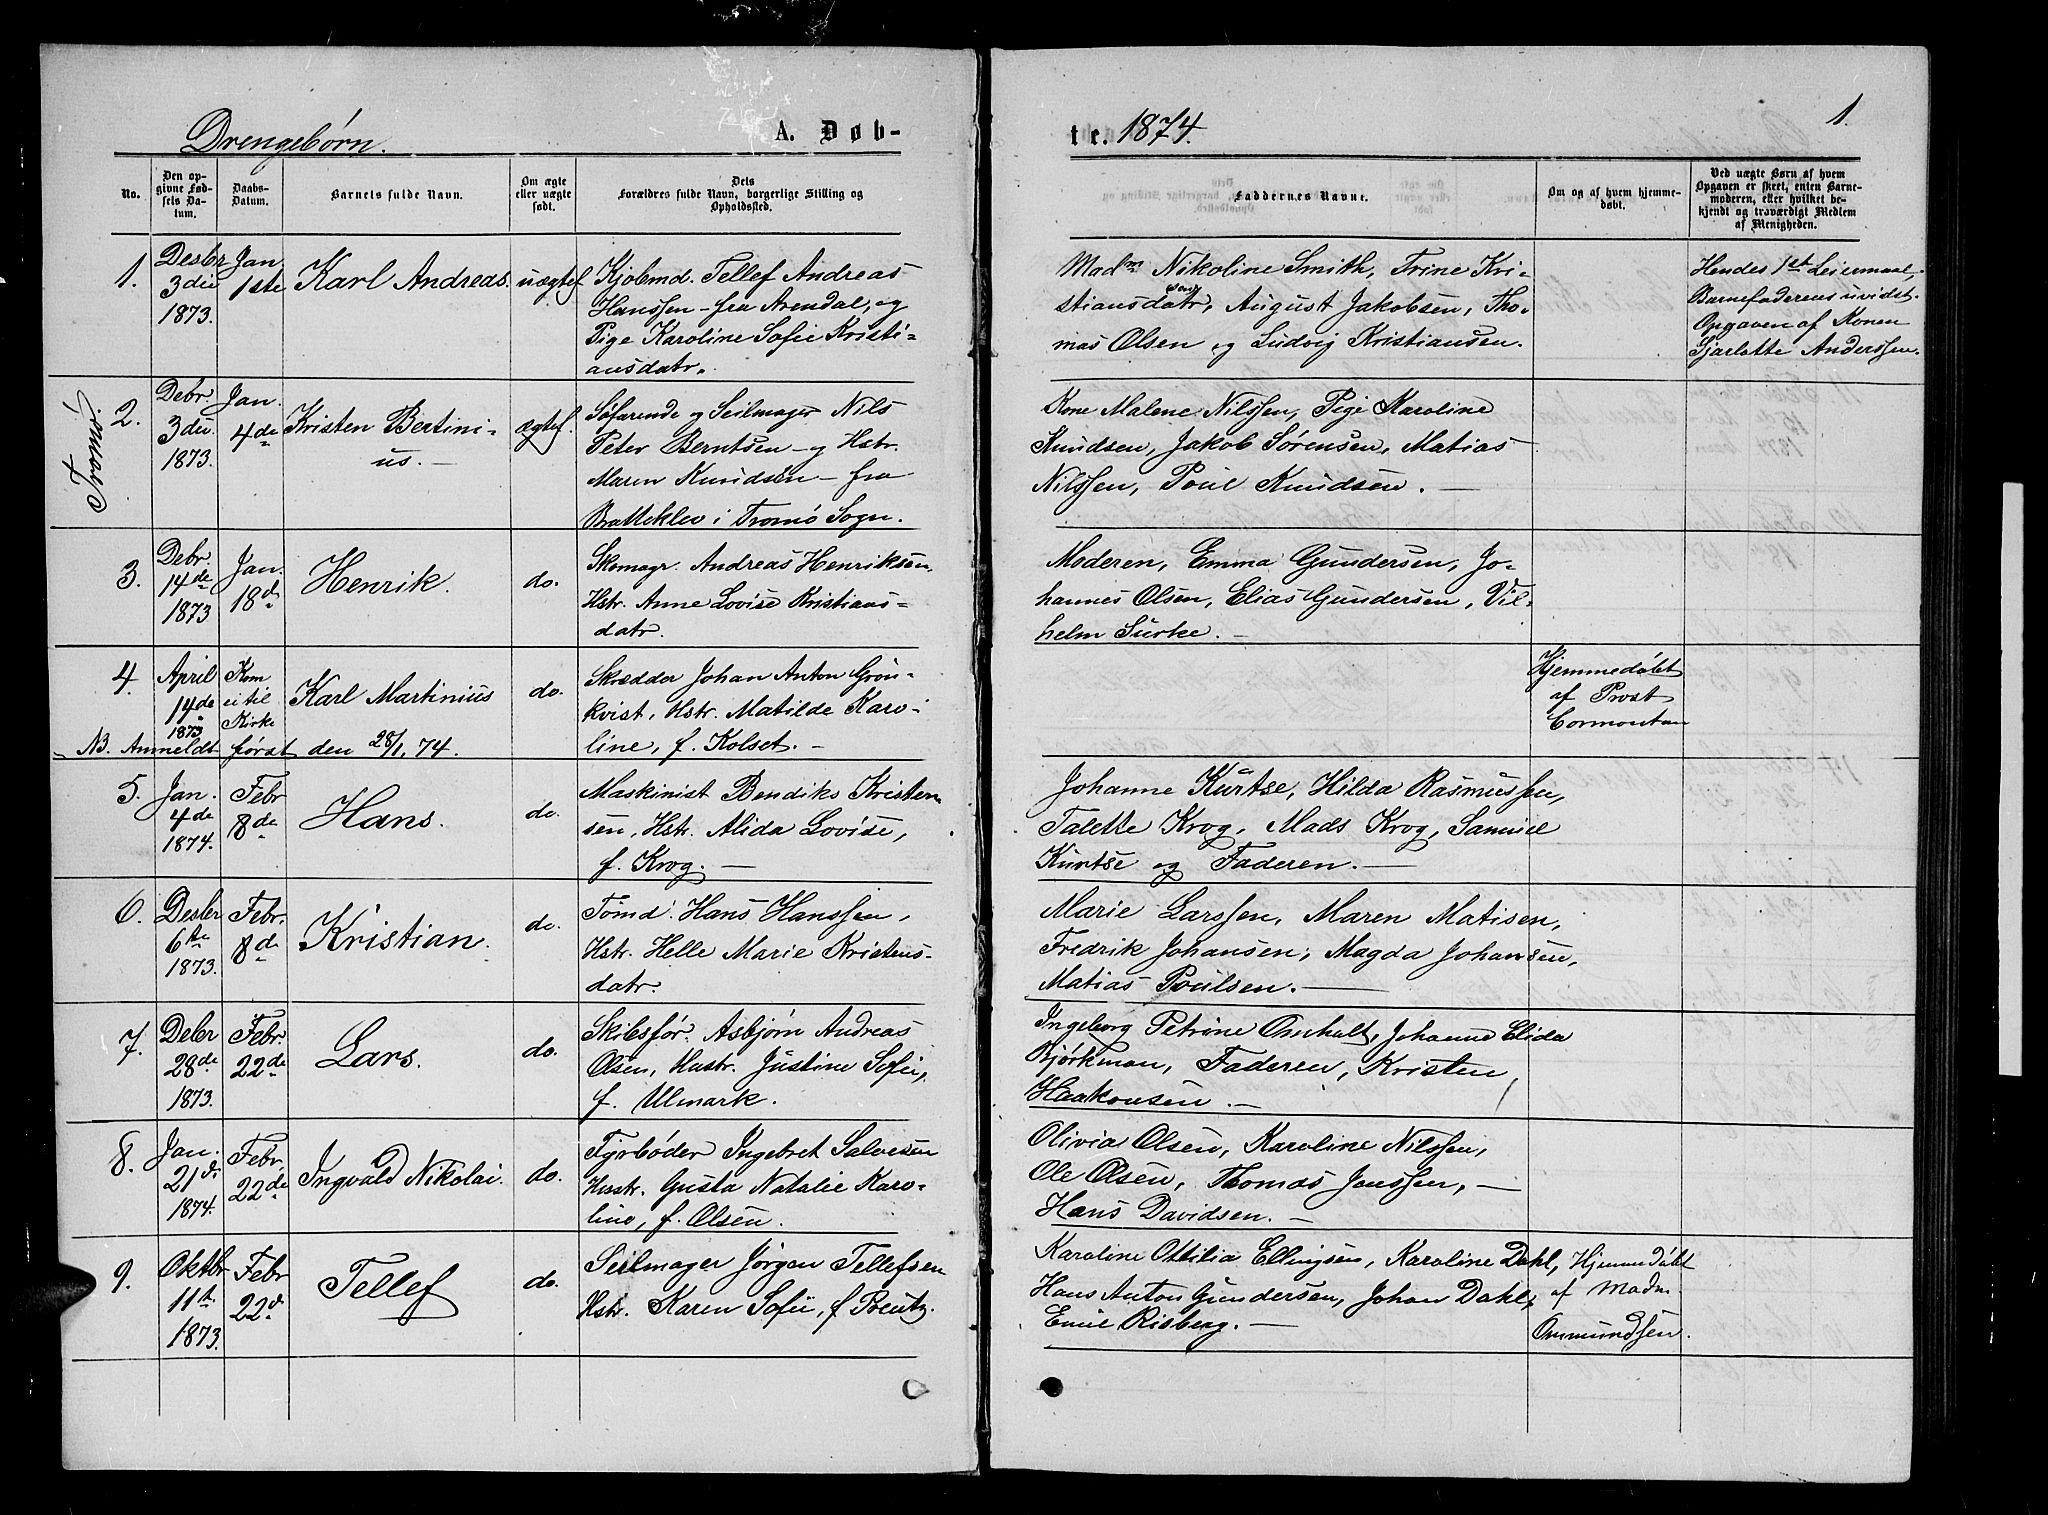 Drengebørn.
A. Døb-
te. 1874.
1.
No.
Den op-
givne Fød-
sels Da-
tum.
Daabs-
Datum.
Barnets fulde Navn.
Om ægte
eller uægte
født.
Dets
Forældres fulde Navn, borgerlige Stilling og
Opholdssted.
Faddernes Navne.
Om og af hvem hjemme-
døbt.
Ved uægte Børn af hvem
Opgaven er skeet, enten Barne-
moderen, eller hvilket be-
kjendt og troværdigt Medlem
af Menigheden.
1.
Desbr
3die
1873.
Jan
1ste
Karl Andreas.
uægtef.
Kjøbmd. Tellef Andreas
Hanssen - fra Arendal, og
Pige Karoline Sofie Kristi-
ansdatr.
Madm Nikoline Smith, Trine Kri-
stiansdatr, August Jakobsen, Tho-
mas Olsen og Ludvig Kristiansen.
Hendes 1st Leiermaal,
Barnefaderens uvidst.
Opgaven af Konen
Sjarlotte Anderssen.
Tromö,
2.
Debr.
3die
1873.
Jan.
4de
Kristen Bertini-
us.
ægtef.
Søfarende og Seilmager Nils
Peter Berntsen - og Hstr.
Maren Knudsen - fra
Bratteklev i Tromö Sogn.
Kone Malene Nilssen, Pige Karoline
Knudsen, Jakob Sørensen, Matias
Nilssen, Poul Knudsen.
3.
Debr.
14de
1873
Jan.
18d
Henrik.
do.
Skomagr. Andreas Henriksen
Hstr. Anne Lovise Kristians-
datr.
Moderen, Emma Gundersen, Jo-
hannes Olsen, Elias Gundersen, Vil-
helm Surke.
4.
April
14de
1873
Kom
ei til
Kirke
Karl Martinius
do.
Skrædder Johan Anton Grön-
kvist, Hstr. Matilde Karo-
line, f. Kolset.
NB. Anmeldt først den 28/1, 74.
Hjemmedøbt
af Prost
Cormontan
5.
Jan.
4de
1874.
Febr
8de
Hans.
do.
Maskinist Bendiks Kristen-
sen, Hstr. Alida Lovise,
f. Krog.
Johanne Kurtse, Hilda Rasmussen,
Talette Krog, Mads Krog, Samuel
Kurtse og Faderen.
6.
Desbr
6te
1873.
Febr.
8de
Kristian.
do.
Tömd. Hans Hanssen,
Hstr. Helle Marie Kristens-
datr.
Marie Larssen, Maren Matisen,
Fredrik Johansen, Magda Johansen,
Matias Poulsen.
7.
Debr
28de
1873.
Febr.
22de
Lars.
do.
Skibsför. Asbjørn Andreas
Olsen, Hustr. Justine Sofie,
f. Ulmark.
Ingeborg Petrine Omholt, Johanne Elida
Bjørkman, Faderen, Kristen
Haakonsen.
8.
Jan.
21de
1874.
Febr.
22de
Ingvald Nikolai.
do.
Fyrbøder Ingebret Salvesen
Hustr. Gusta Natalie Karo-
line, f. Olsen.
Olivia Olsen, Karoline Nilssen,
Ole Olsen, Thomas Janssen,
Hans Davidsen.
9.
Oktbr
11te
1873.
Febr
22d
Tellef
do.
Seilmager Jørgen Tellefsen
Hstr. Karen Sofie, f. Preutz.
Karoline Ottilia Ellingsen, Karoline Dahl,
Hans Anton Gundersen, Johan Dahl,
Emil Risberg.
Hjemmedøbt
af Madm.
Ommundsen.